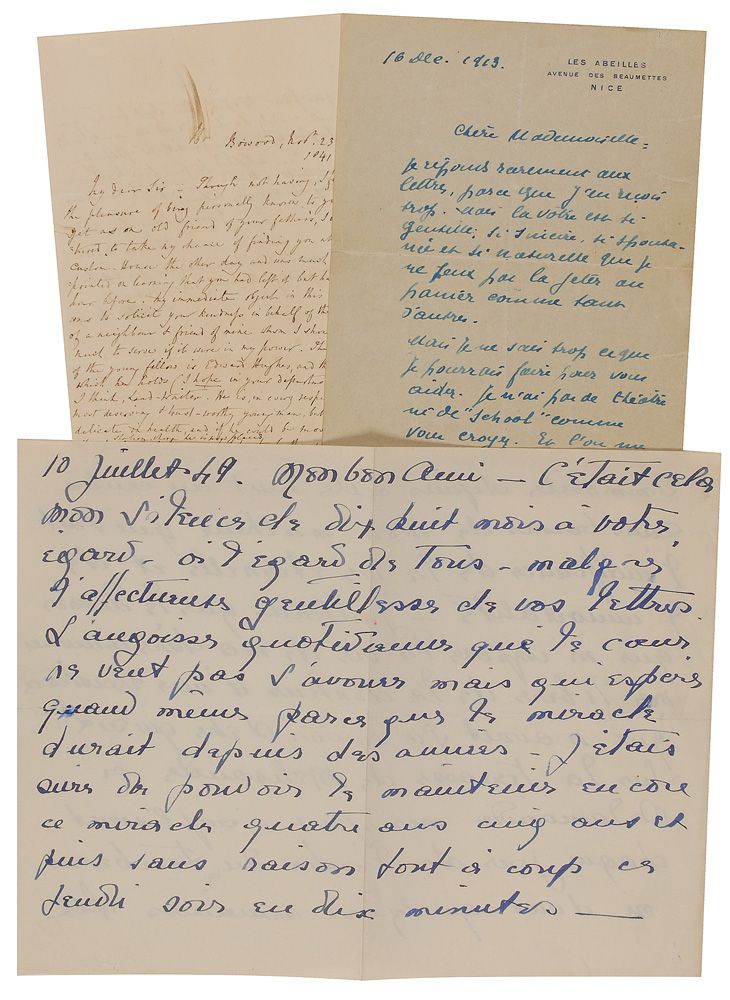 Bowood, Nov.r 23
1841
My dear Sir – Though not having, I
the pleasure of being personally known to yo
yet as an old friend of your father's, I
to take my chance of finding you at
Custom House the other day and was much
pointed on learning that you had left it but ha
hour before. My immediate object in this
was to solicit your kindness in behalf of th
of a neighbour & friend of mine whom I sho
much to serve if it were in my power. The
of the young fellow is Edward Hughes, and th
which he holds (I hope in your departme
I think, Land-Waiter. He is, in every resp
most deserving & trust-worthy young man, but
delicate in health, and if he could be mo
16 Dec. 1913.
LES ABEILLES
AVENUE DES BEAUMETTES
NICE
Chère Mademoiselle =
je réponds rarement aux
lettres, parce que j'en reçois
trop. Mais la votre est si
gentille, si sincère, si sponta-
née et si naturelle que je
ne peux pas la jeter au
panier comme tant
d'autres.
Mais je ne sais trop ce que
je pourrais faire pour vous
aider. Je n'ai pas de théâtre
ni de "School" comme
vous croyez. Et l'on me
10 Juillet 49. Mon bon Ami – C'était cela
mon silence de dix huit mois à votre
égard – à l'égard de tous – malgré
l'affectueuse gentillesse de vos lettres.
L'angoisse quotidienne que le cœur
ne veut pas s'avouer mais qui espère
quand même parce que le miracle
durait depuis des années – J'étais
sûre de pouvoir le maintenir encore
ce miracle quatre ans cinq ans et
puis sans raison tout à coup ce
Jeudi soir en dix minutes —